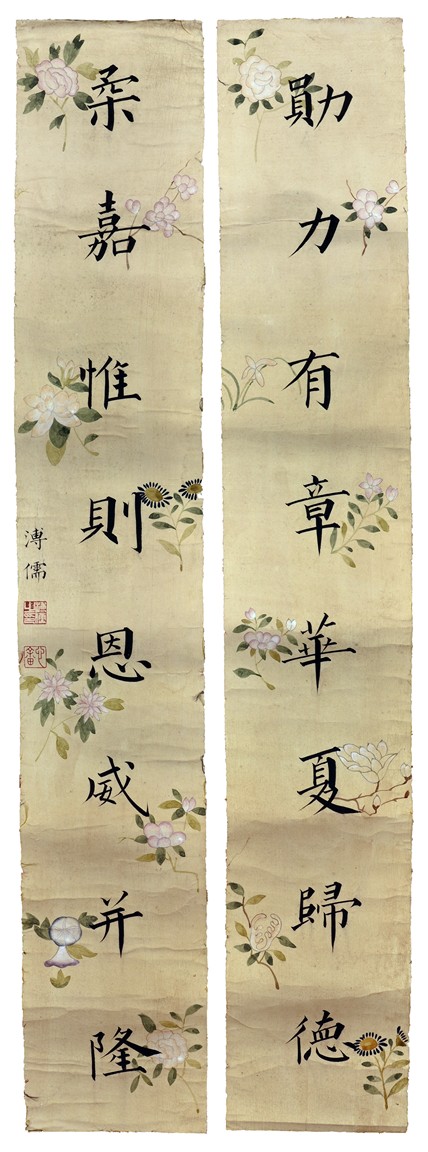 勛力有章華夏歸德
柔嘉惟則恩威并隆
溥儒